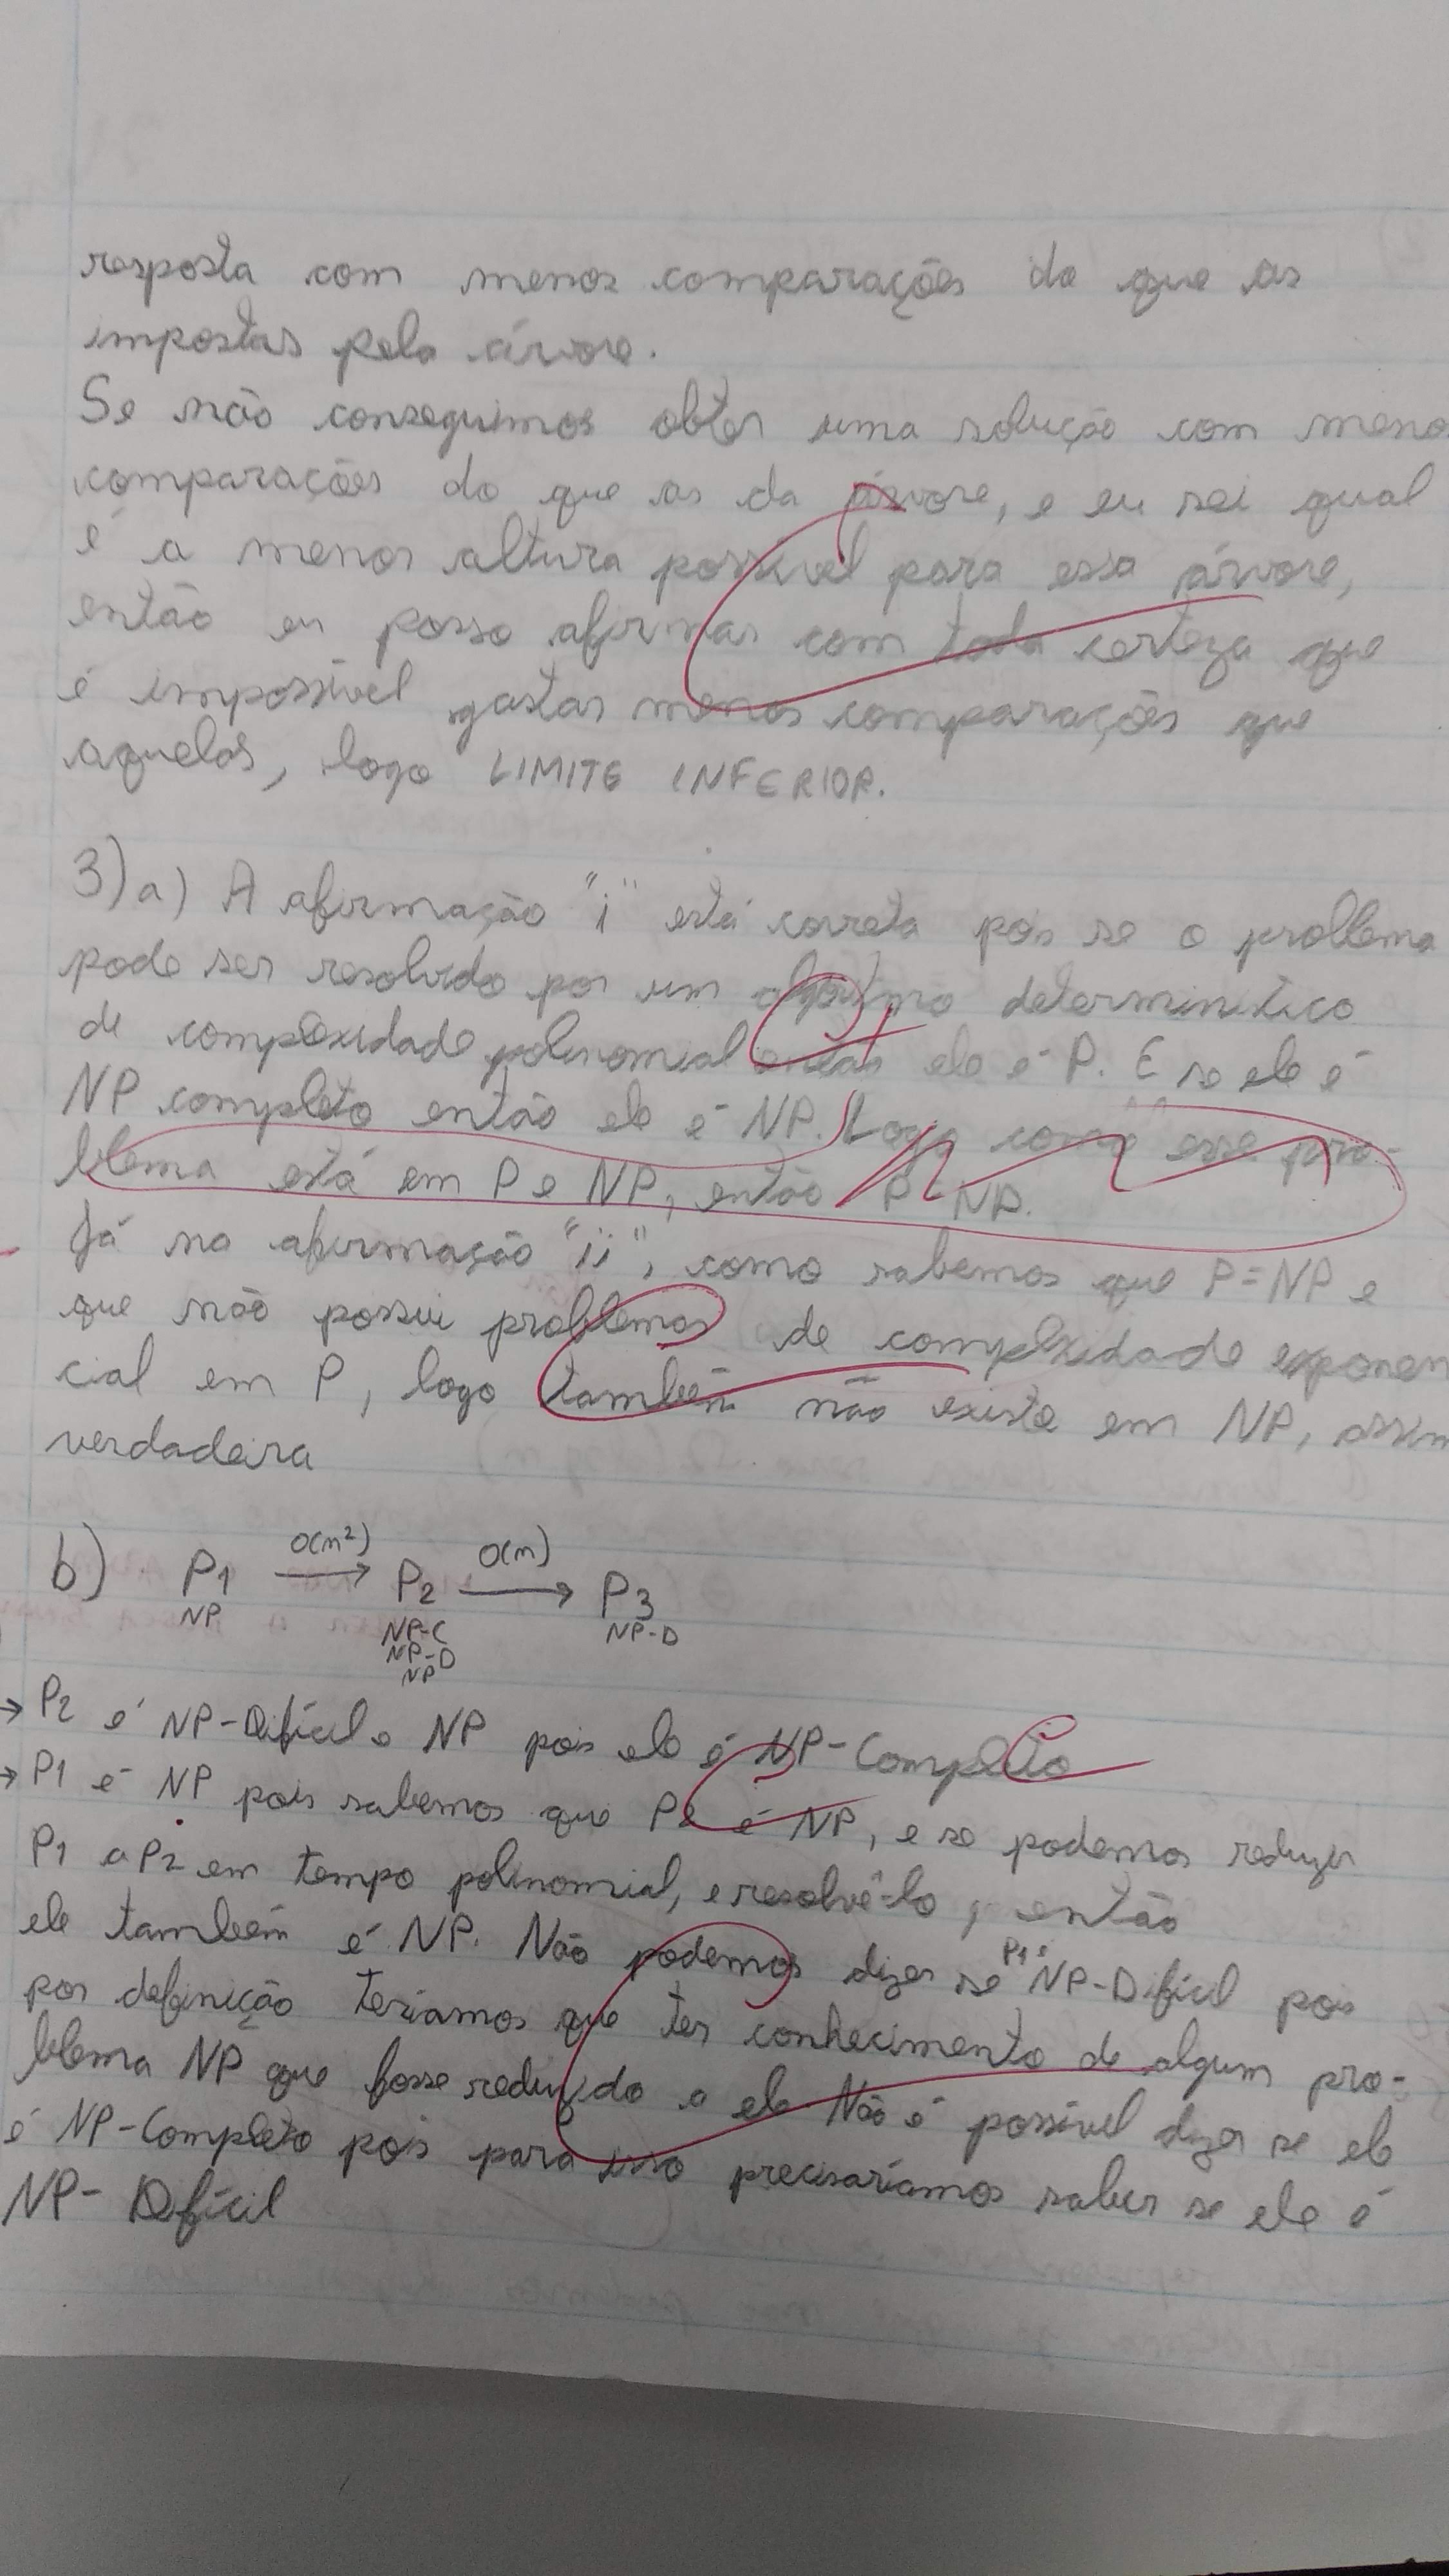 resposta com menos comparações do que as
impostas pela árvore.
Se não conseguimos obter uma solução com meno
comparações do que as da árvore, e eu sei qual
é a menor altura possível para essa árvore,
então eu posso afirmar com toda certeza que
é impossível gastar menos comparações que
aquelas, logo LIMITE INFERIOR.
3)a) A afirmação "i" está correta pois se o problema
pode ser resolvido por um algoritmo
de complexidade polinomial então ele é P. E se ele é
NP completo então ele é NP. Logo como esse pro-
blema está em P e NP, então P=NP.
Já na afirmação "ii", como sabemos que P=NP e
que não possui problemas de complexidade exponen
cial em P, logo também não existe em NP, assim
verdadeira
b) P1 O(n²) → P2 O(n) → P3
NP NP-C NP-D
NP-D
NP
→ P2 é NP-Difícil e NP pois ele é NP-Completo
→ P1 é NP pois sabemos que P2 é NP, e se podemos reduzir
P1 a P2 em tempo polinomial, e resolvê-lo, então
ele também é NP. Não podemos dizer se P1 é NP-Difícil pois
por definição teriamos que ter conhecimento de algum pro-
blema NP que fosse reduzido a ele. Não é possível dizer se ele
é NP-Completo pois para isso precisaríamos saber se ele é
NP-Difícil